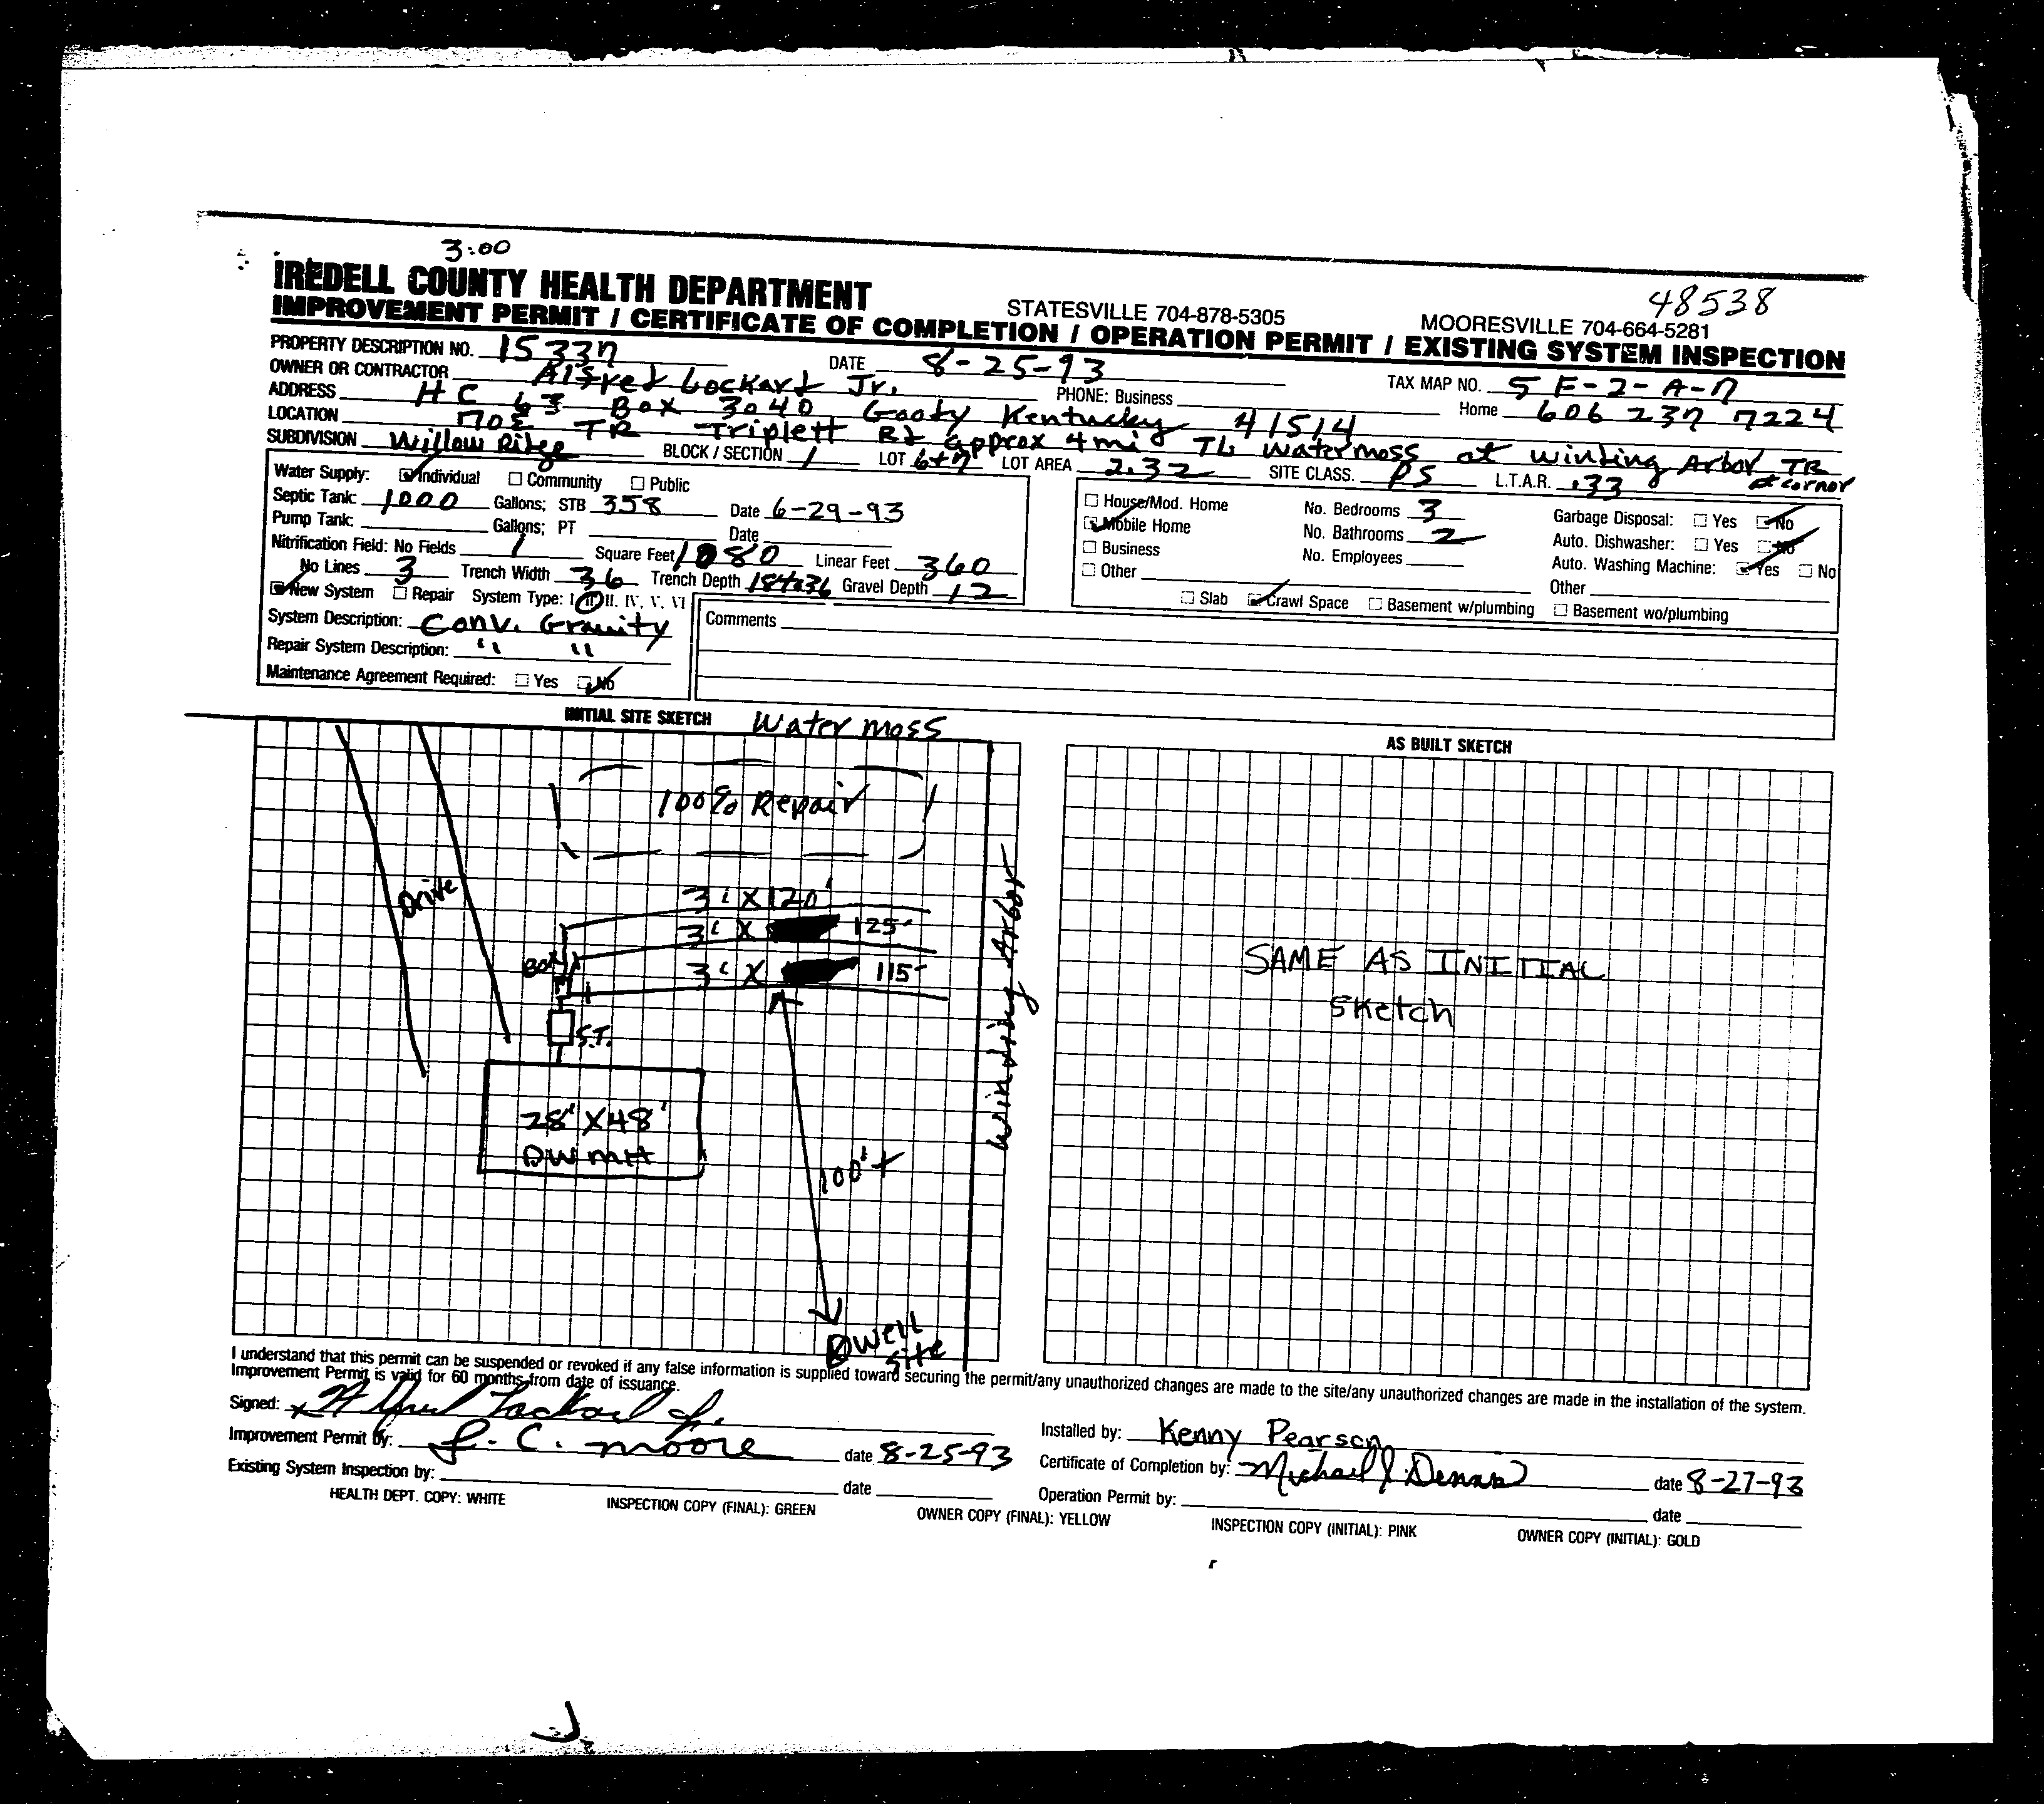 3:00
48538
IREDELL COUNTY HEALTH DEPARTMENT STATESVILLE 704-878-5305 MOORESVILLE 704-664-5281
IMPROVEMENT PERMIT / CERTIFICATE OF COMPLETION / OPERATION PERMIT / EXISTING SYSTEM INSPECTION
PROPERTY DESCRIPTION NO. 15337 DATE 8-25-93 TAX MAP NO. 5F-2-A-7
OWNER OR CONTRACTOR Alfred Lockart Jr. PHONE: Business Home 606 237 7224
ADDRESS HC 63 Box 3040 Goody Kentucky 41514
LOCATION 70E TR Triplett Rd approx 4 mi TL Watermoss at Winding Arbor TR at corner
SUBDIVISION Willow Ridge BLOCK / SECTION 1 LOT 6+7 LOT AREA 2.32 SITE CLASS. PS L.T.A.R. .33
Water Supply: Individual Community Public
Septic Tank: 1000 Gallons; STB 358 Date 6-29-93
Pump Tank: Gallons; PT Date
Nitrification Field: No Fields 1 Square Feet 1080 Linear Feet 360
No Lines 3 Trench Width 36 Trench Depth Gravel Depth 12
New System Repair System Type: I, II, III. IV, V, VI
System Description: Conv. Gravity
Repair System Description: " "
Maintenance Agreement Required: Yes No
House/Mod. Home No. Bedrooms 3 Garbage Disposal: Yes No
Mobile Home No. Bathrooms 2 Auto. Dishwasher: Yes No
Business No. Employees Auto. Washing Machine: Yes No
Other Other
Slab Crawl Space Basement w/plumbing Basement wo/plumbing
Comments
INITIAL SITE SKETCH Water moss
AS BUILT SKETCH
100% Repair
Drive
3' X 120'
3' X 125'
3' X 115'
Box
S.T.
28' X 48'
DWMH
100'+
Well
Site
Winding Arbor
SAME AS INITIAL
Sketch
I understand that this permit can be suspended or revoked if any false information is supplied toward securing the permit/any unauthorized changes are made to the site/any unauthorized changes are made in the installation of the system.
Improvement Permit is valid for 60 months from date of issuance.
Signed: x Alfred Lockard Jr.
Improvement Permit By: J. C. Moore date 8-25-93
Existing System Inspection by: date
Installed by: Kenny Pearson
Certificate of Completion by: Michael J Dennis date 8-27-93
Operation Permit by: date
HEALTH DEPT. COPY: WHITE INSPECTION COPY (FINAL): GREEN OWNER COPY (FINAL): YELLOW INSPECTION COPY (INITIAL): PINK OWNER COPY (INITIAL): GOLD